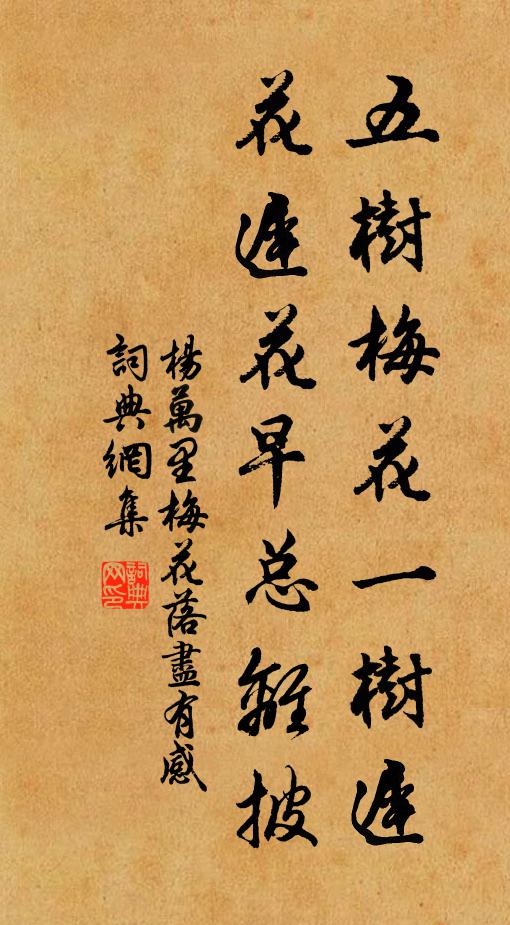 五樹梅花一樹遲
花遲花早总離披
楊萬里梅花落盡有感
詞典網集
詞典网印